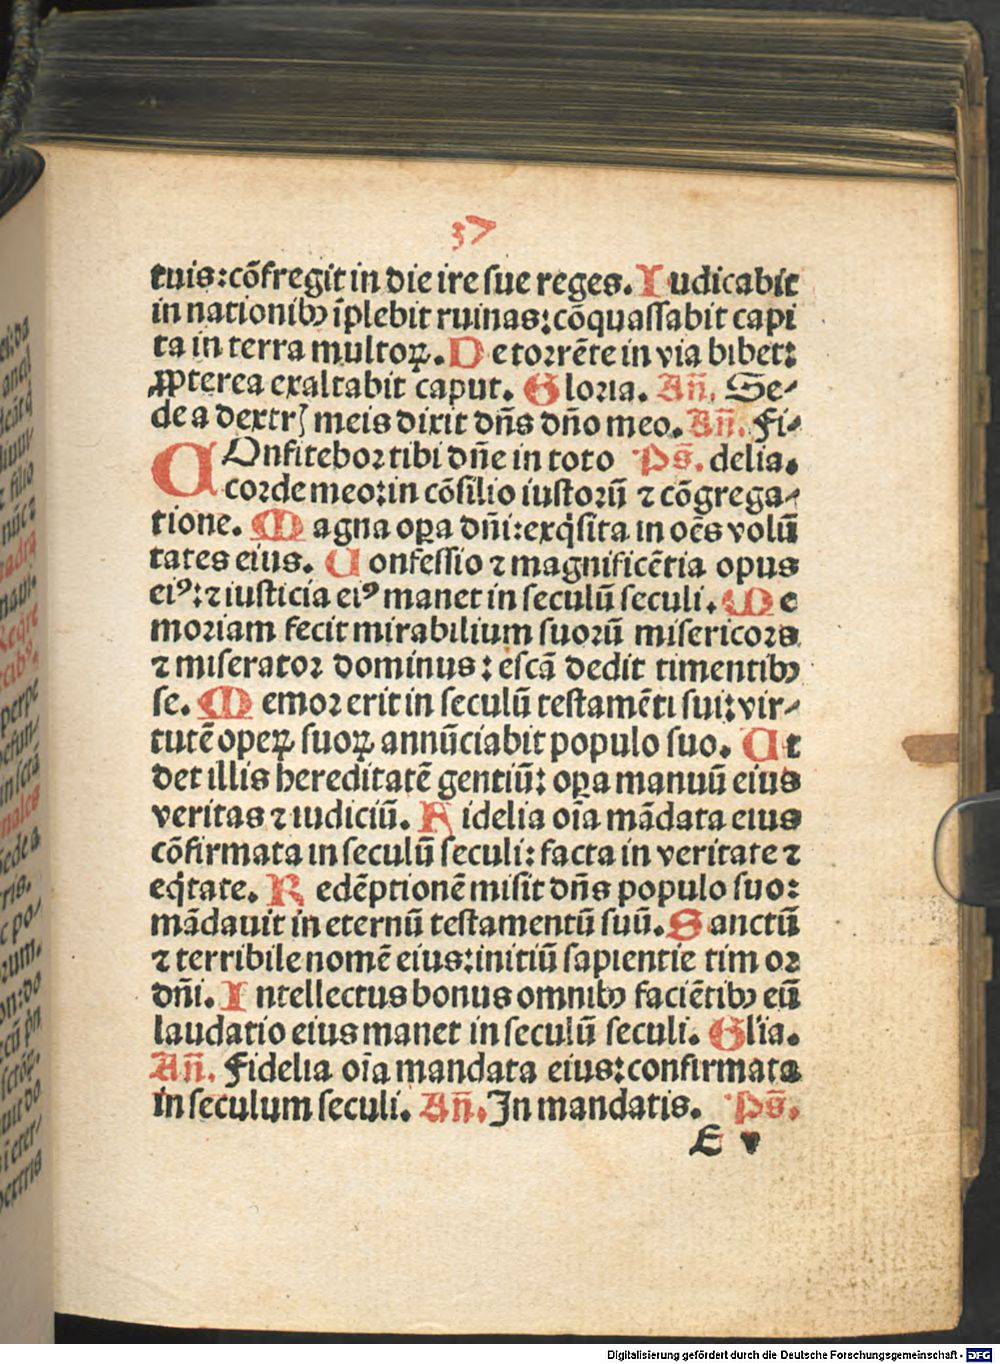 37
tuis:cõfregit in die ire sue reges. Iudicabit
in nationibꝰ īplebit ruinas: cõquassabit capi
ta in terra multoꝝ. De torrēte in via bibet:
ꝓpterea exaltabit caput. Gloria. Añ. Se-
de a dextrꝭ meis dixit dñs dño meo. Añ. Fi-
COnfitebor tibi dñe in toto Ps̄. delia.
corde meo: in cõsilio iustorũ ⁊ cõgrega-
tione. Magna oꝑa dñi: exq̇sita in oẽs volũ
tates eius. Confessio ⁊ magnificẽtia opus
eiꝰ: ⁊ iusticia eiꝰ manet in seculũ seculi. Me
moriam fecit mirabilium suorũ misericors
⁊ miserator dominus: escã dedit timentibꝰ
se. Memor erit in seculũ testamẽti sui: vir-
tutẽ opeꝝ suoꝝ annũciabit populo suo. Ut
det illis hereditatẽ gentiũ: oꝑa manuũ eius
veritas ⁊ iudiciũ. Fidelia oĩa mãdata eius
cõfirmata in seculũ seculi: facta in veritate ⁊
eq̇tate. Redẽptionẽ misit dñs populo suo:
mãdauit in eternũ testamentũ suũ. Sanctũ
⁊ terribile nomẽ eius: initiũ sapientie timor
dñi. Intellectus bonus omnibꝰ faciẽtibꝰ eũ
laudatio eius manet in seculũ seculi. Gl'ia.
Añ. Fidelia oĩa mandata eius: confirmata
in seculum seculi. Añ. In mandatis. Ps̄.
E v
Digitalisierung gefördert durch die Deutsche Forschungsgemeinschaft - DFG